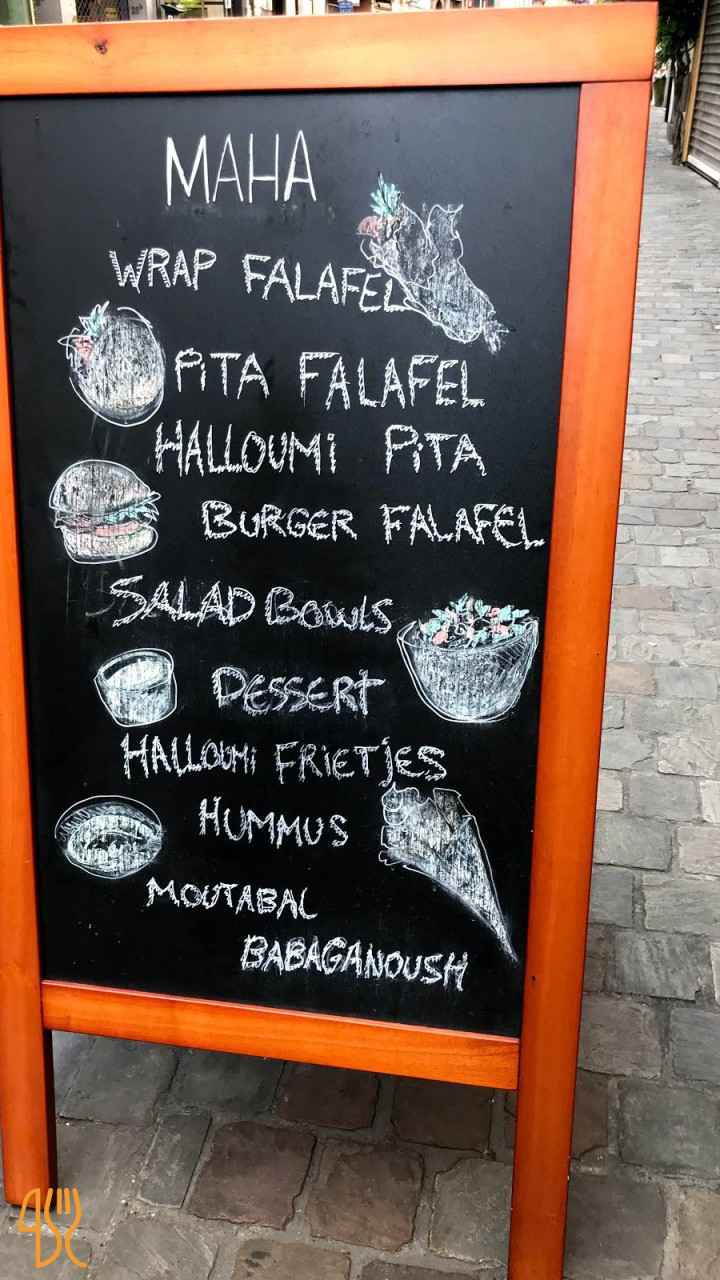 MAHA
WRAP FALAFEL
PiTA FALAFEL
HALLOUMi PiTA
BURGER FALAFEL
SALAD BOWLS
DESSERT
HALLOUMi FRiETjES
HUMMUS
MOUTABAL
BABAGANOUSH